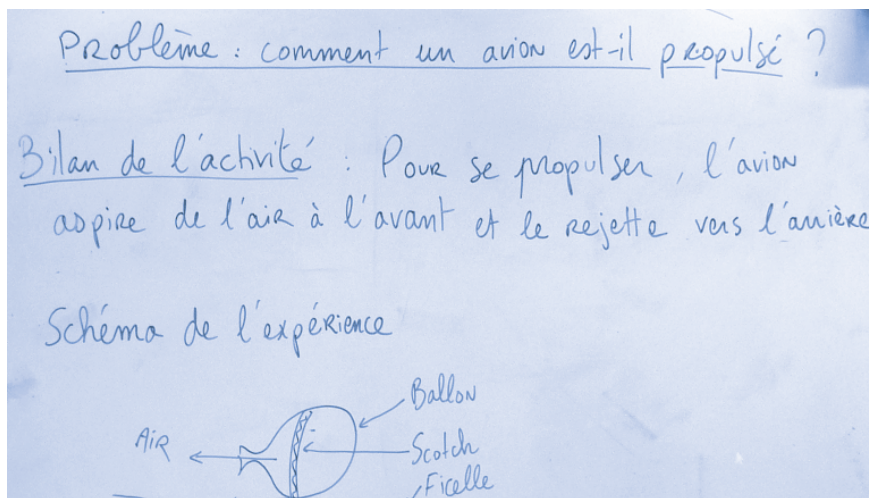 Problème : comment un avion est-il propulsé ?
Bilan de l'activité : Pour se propulser, l'avion
aspire de l'air à l'avant et le rejette vers l'arrière
Schéma de l'expérience
Ballon
Air
Scotch
Ficelle